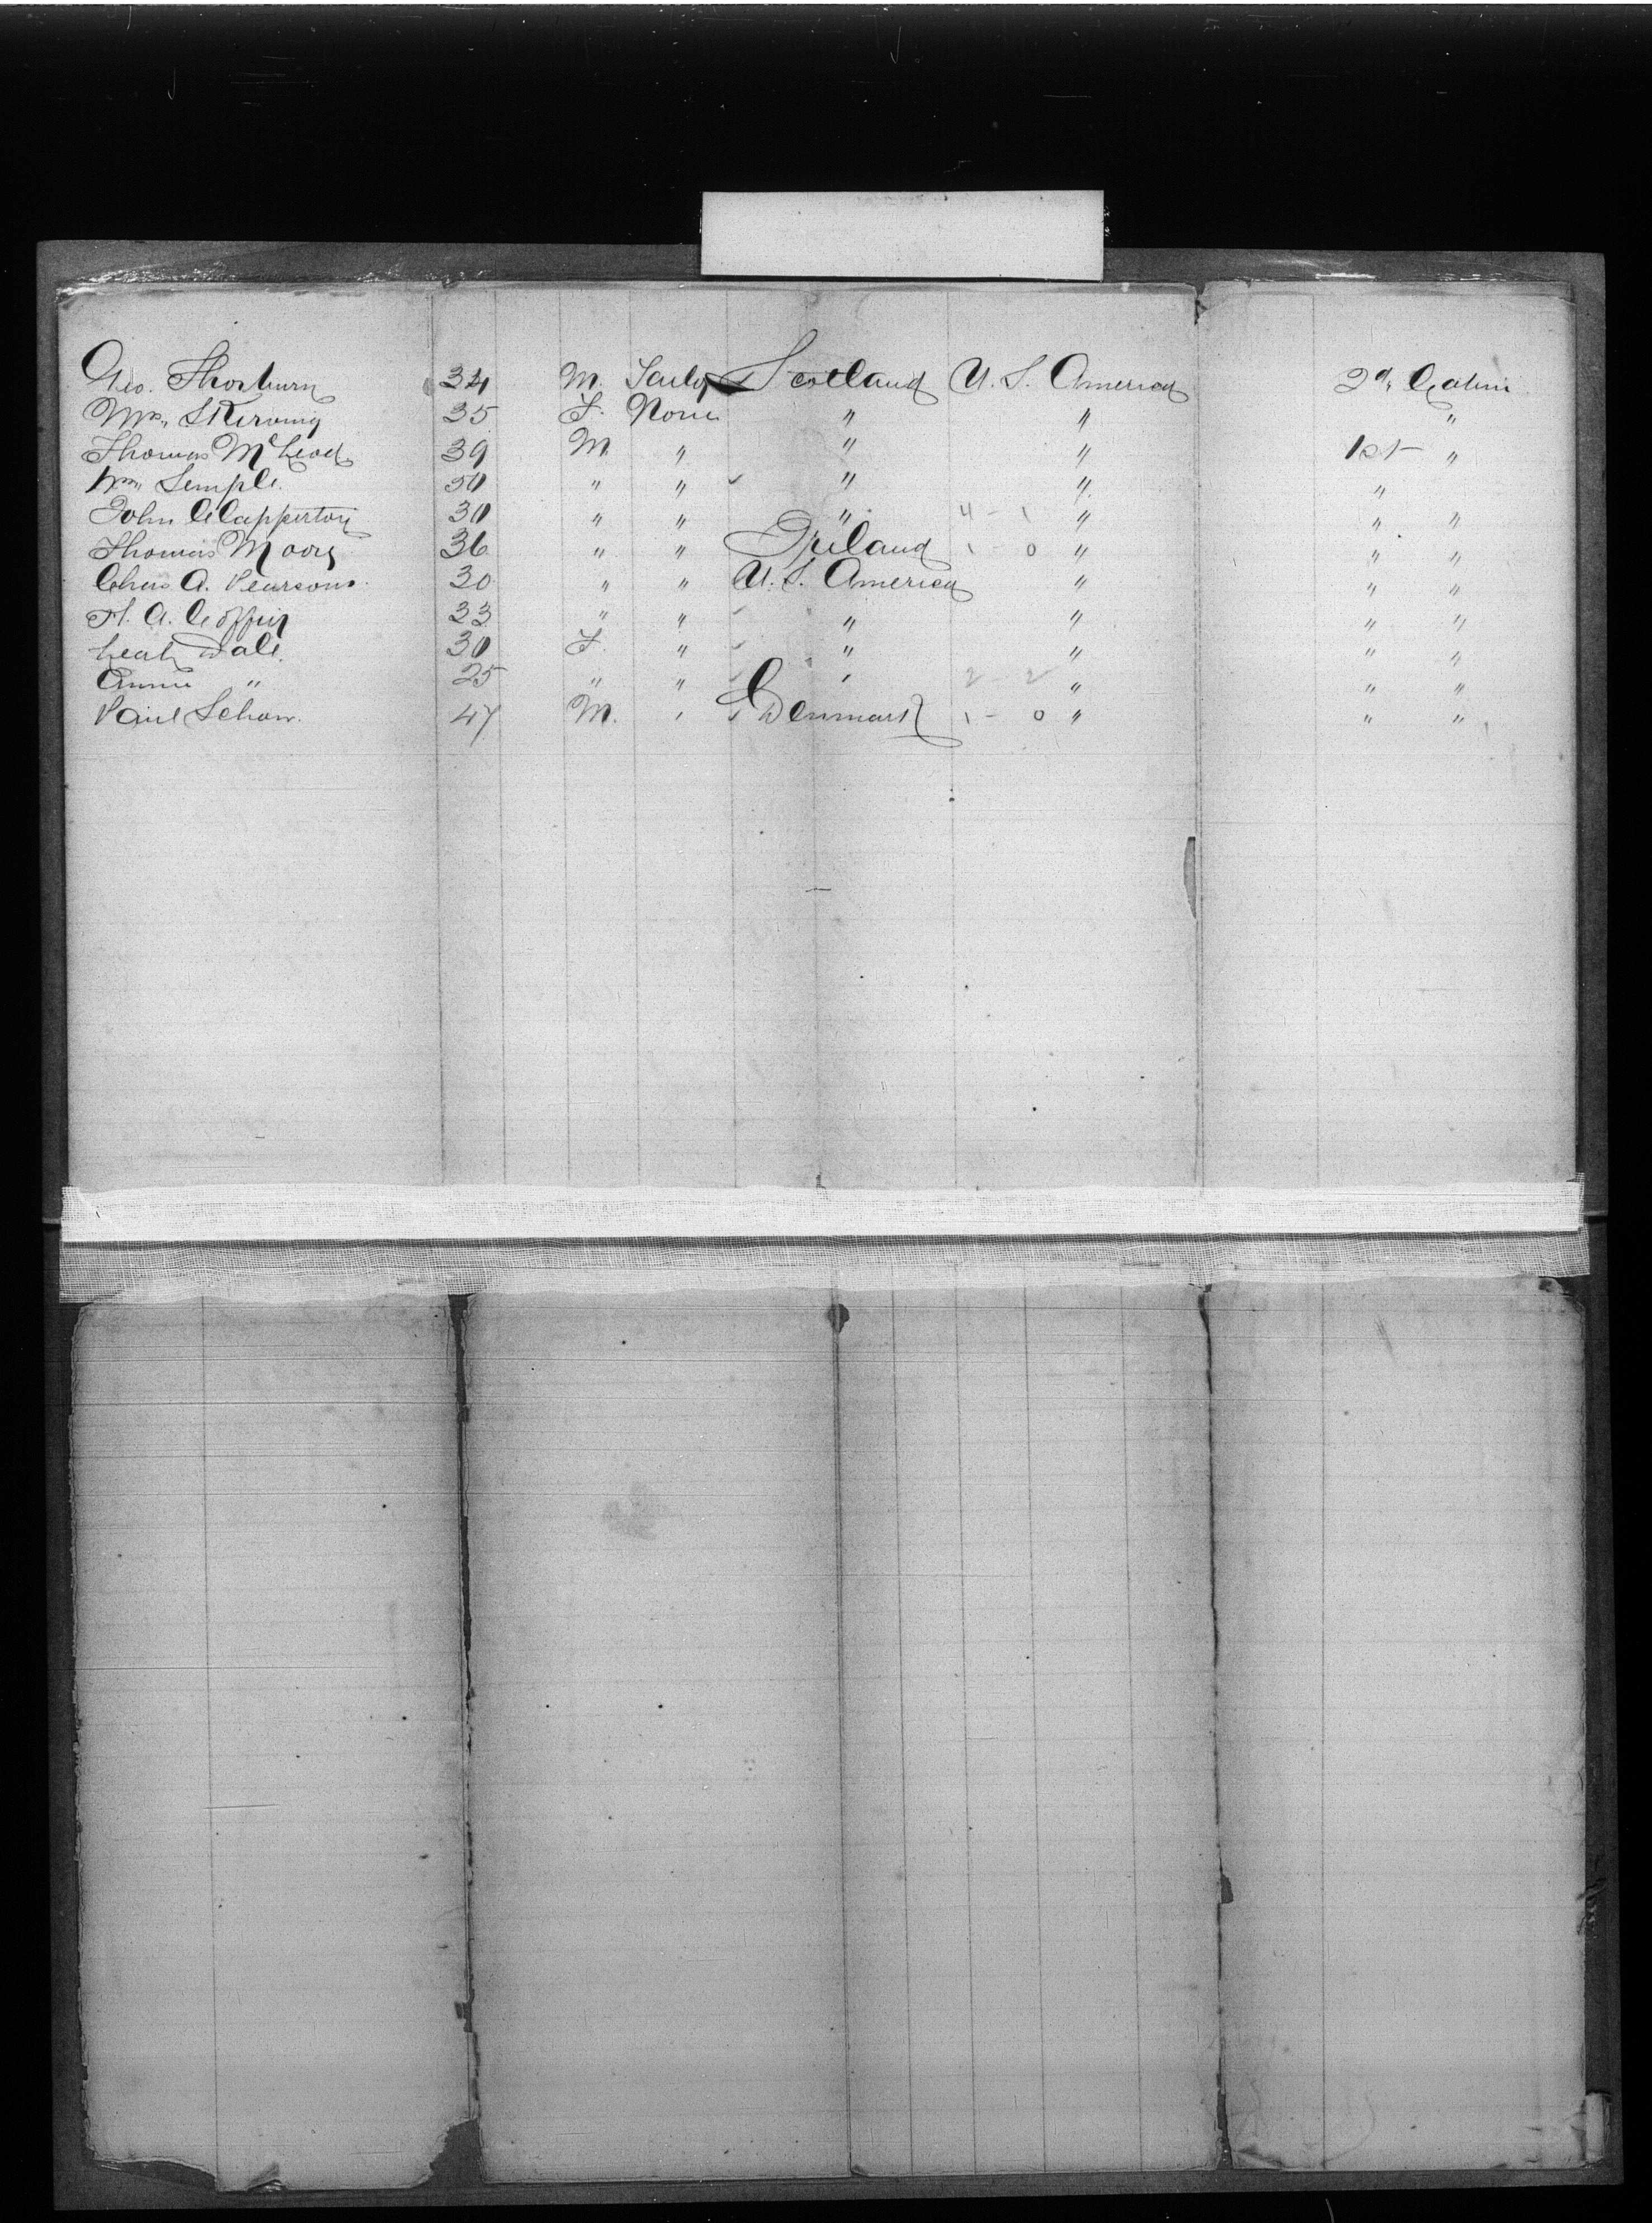 Geo. Thorburn 34 M. Scotland U. S. America 2d. Cabin
Mrs. Skirving 35 F. None " " "
Thomas McLeod 39 M. " " " 1st "
Wm. Semple. 50 " " " " "
John Clapperton 30 " " " 4 - 1 " " "
Thomas Moore 36 " " Ireland 1 - 0 " " "
Chas A. Pearson. 30 " " U. S. America " " "
H. A. Coffin 33 " " " " " "
Leah Dale. 30 F. " " " " "
Annie " 25 " " " 2 - 2 " " "
Paul Schow. 47 M. " Denmark 1 - 0 " " "